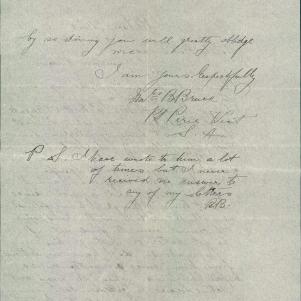 by so doing you will greatly oblige
me
I am yours Respectfully
B Bruce
Pt Pirie West
S. A
P S. I have wrote to him a lot
of times but I never
received no answer to
any of my letters
B.B.